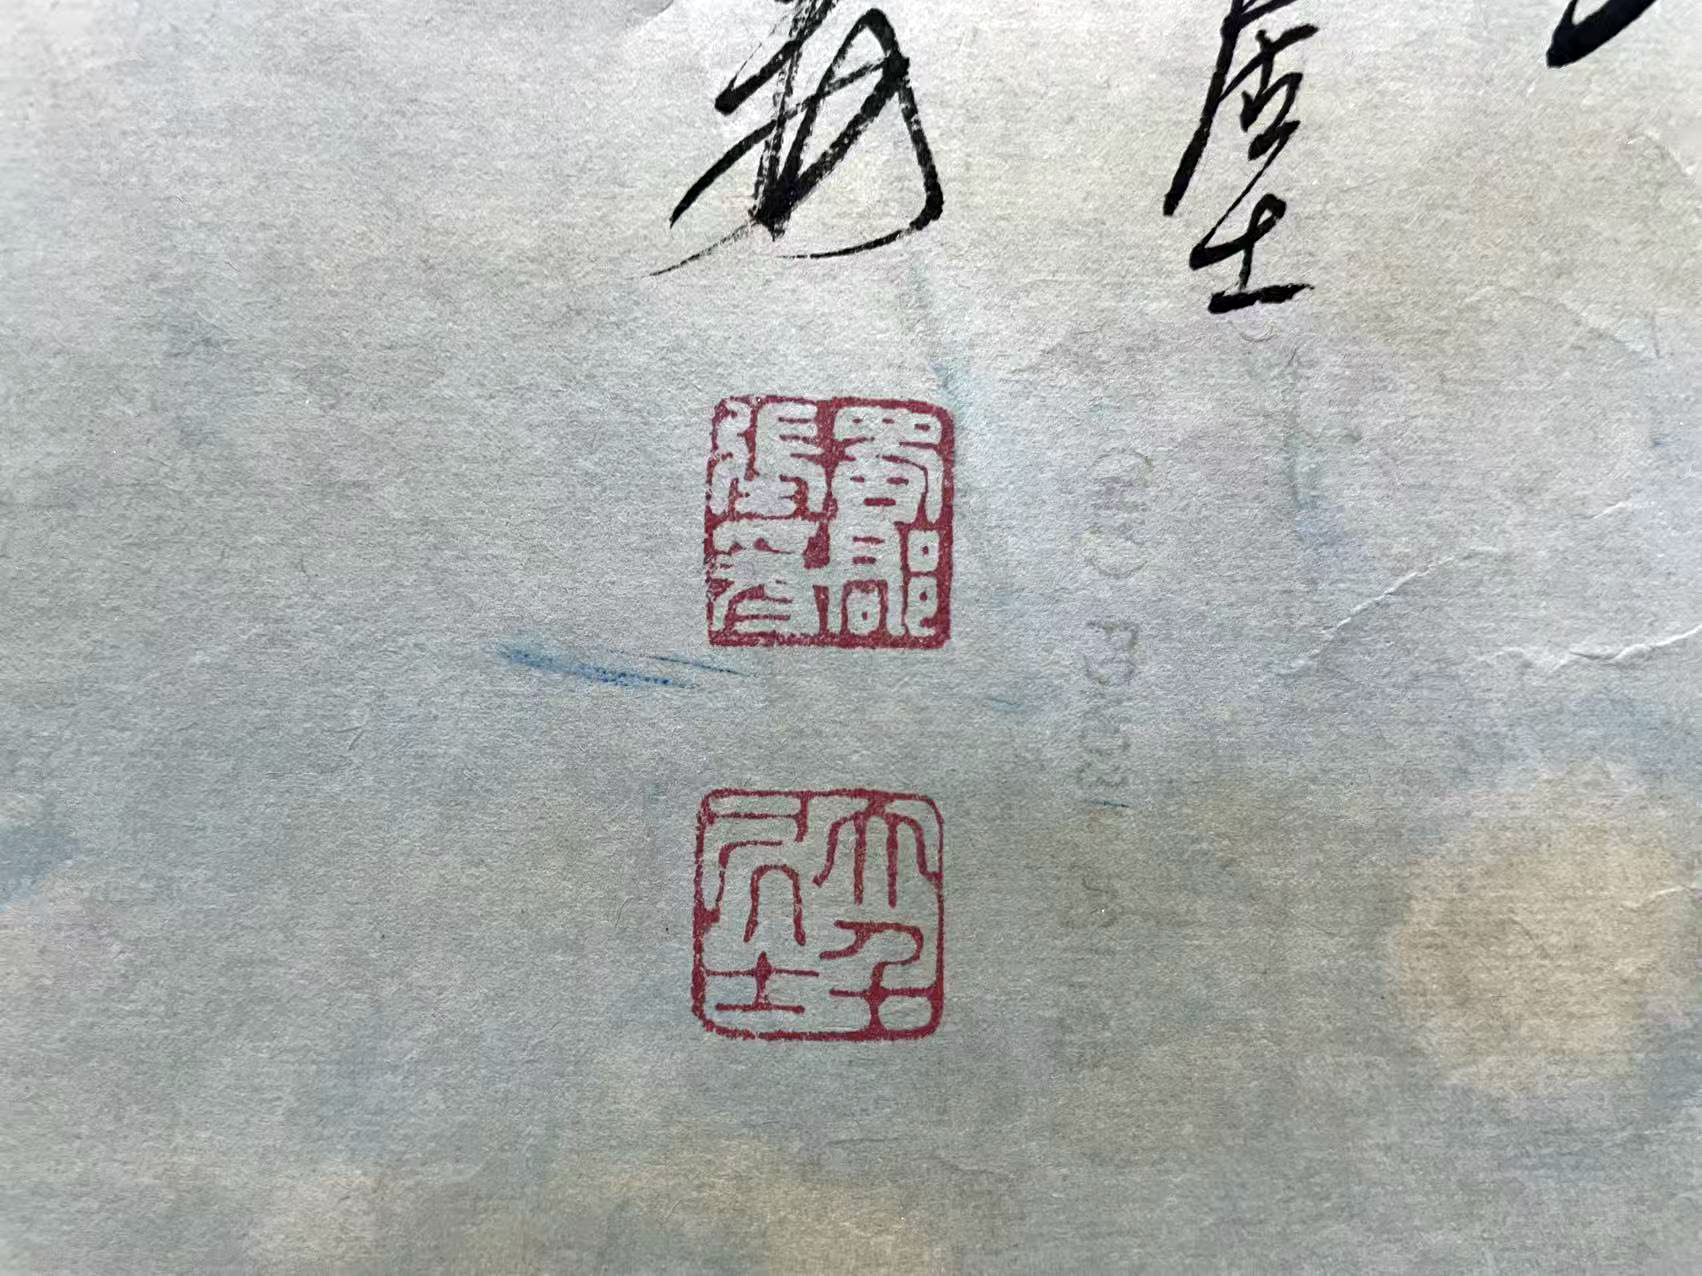 居士
蜀郡張爰
大千居士